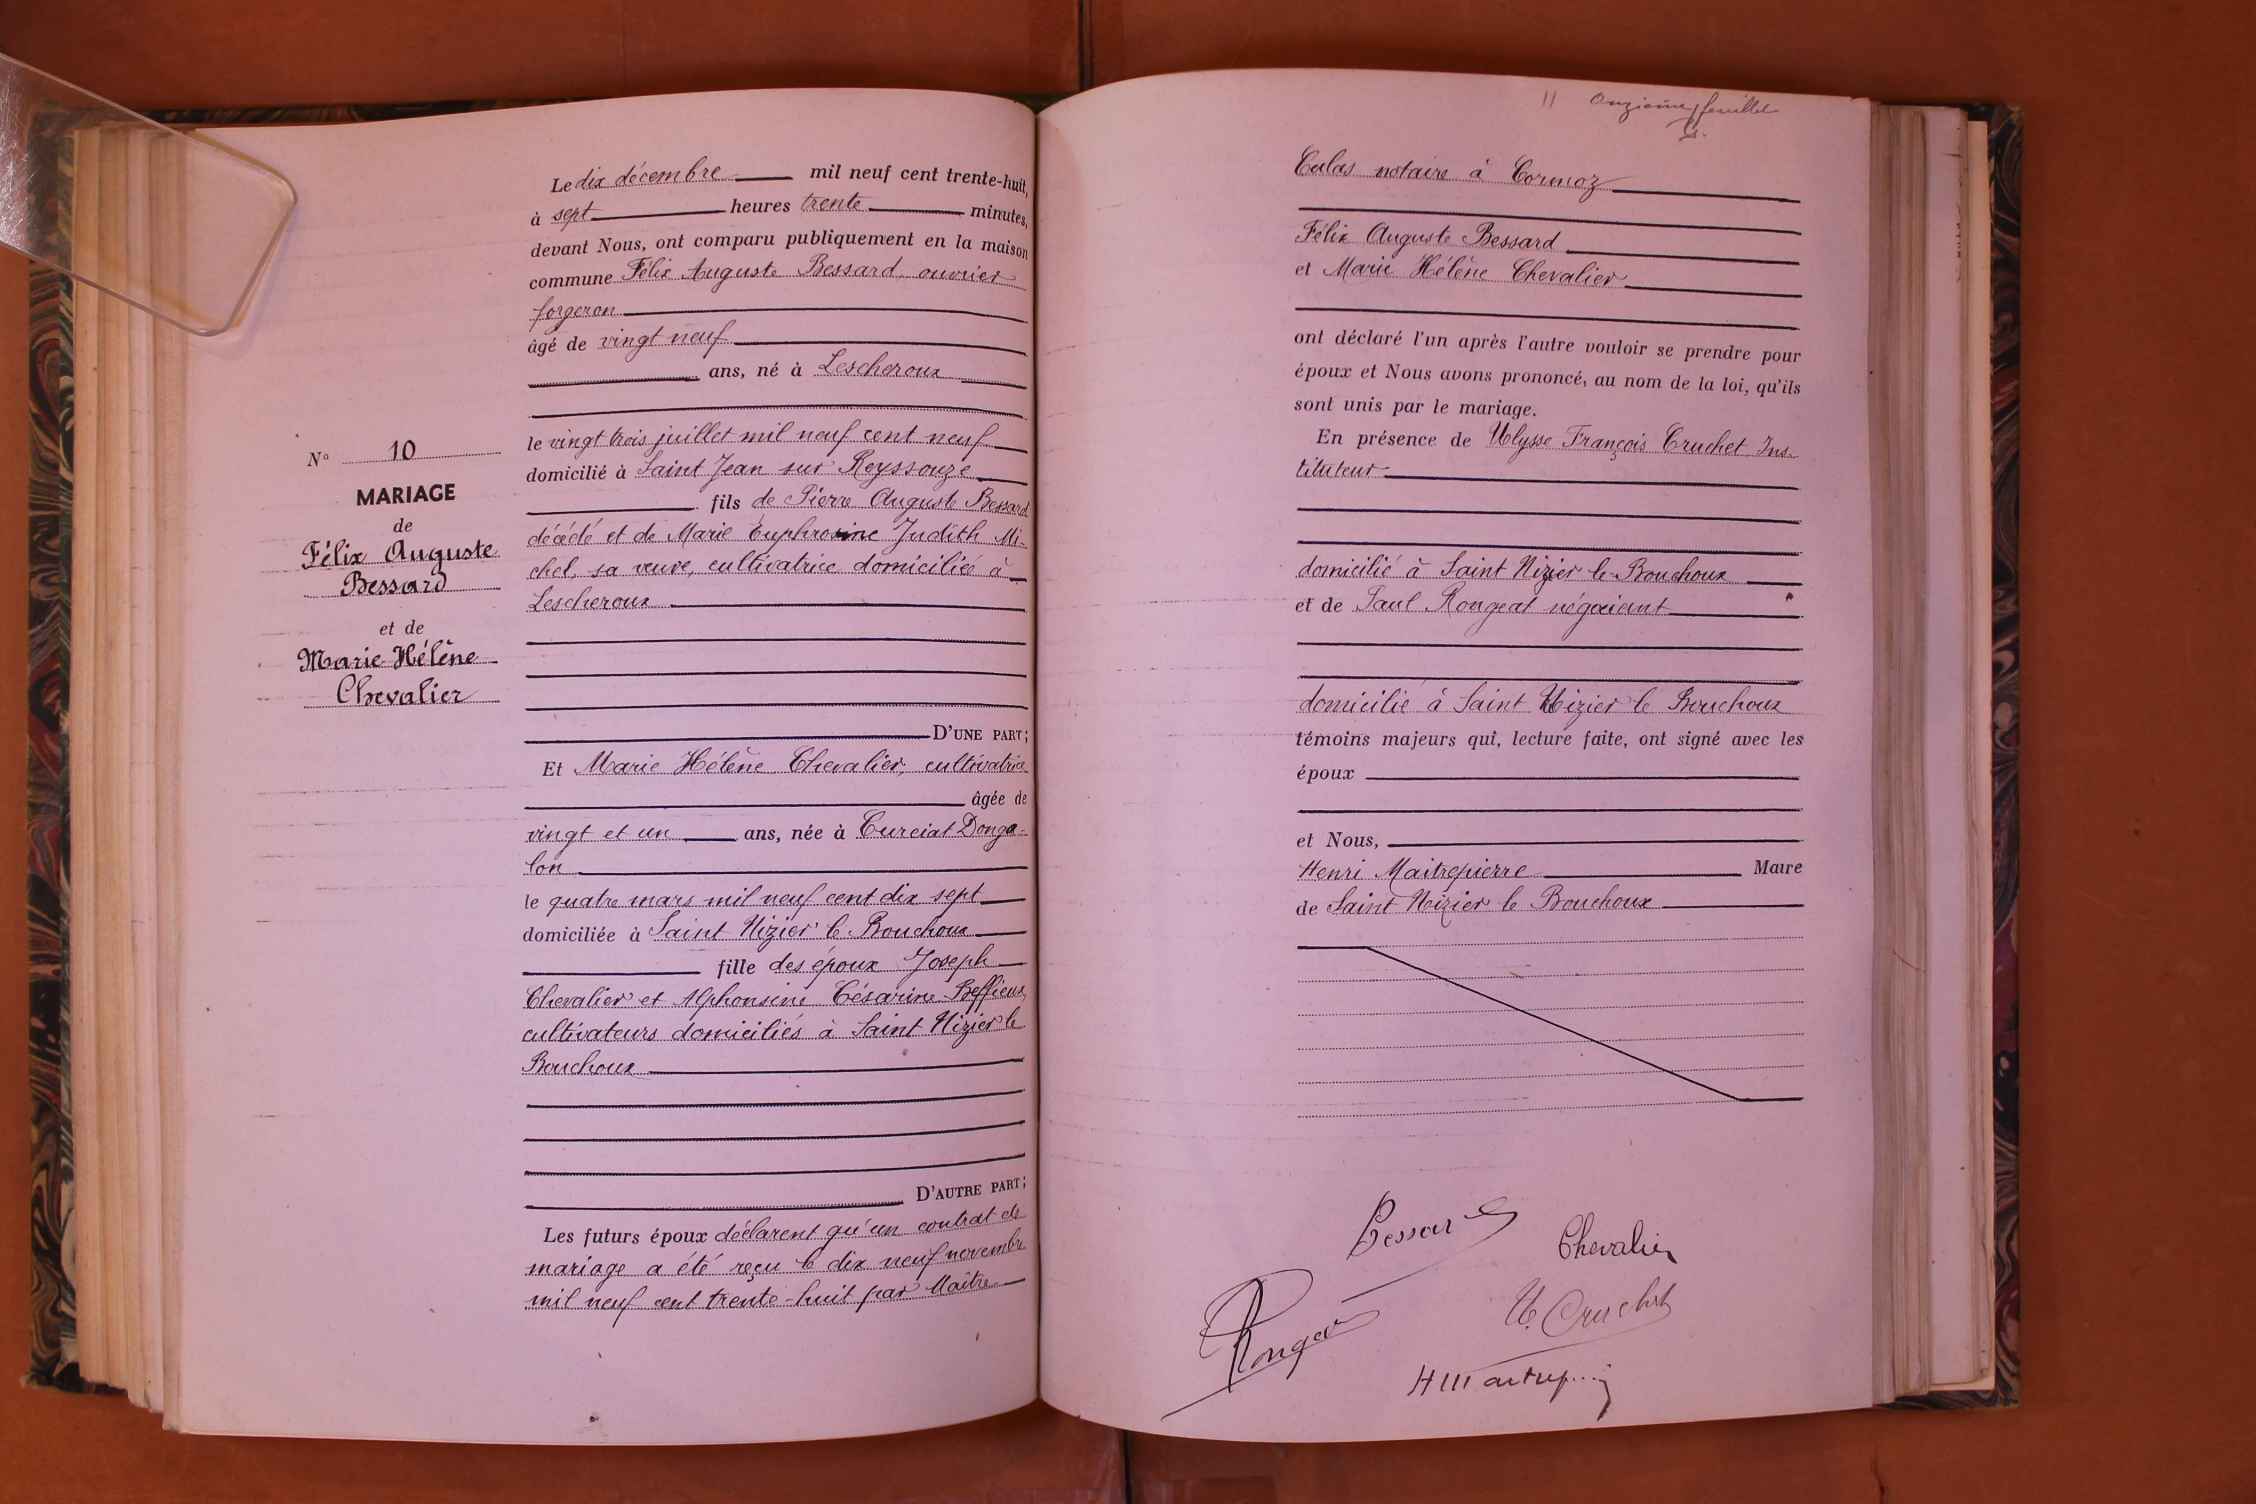 N° 10
MARIAGE
de
Félix Auguste
Bessard
et de
Marie Hélène
Chevalier
Le dix décembre mil neuf cent trente-huit,
à sept heures trente minutes,
devant Nous, ont comparu publiquement en la maison
commune Félix Auguste Bessard, ouvrier
forgeron
âgé de vingt neuf
ans, né à Lescheroux
le vingt trois juillet mil neuf cent neuf
domicilié à Saint Jean sur Reyssouze
fils de Pierre Auguste Bessard
décédé et de Marie Euphrosine Judith Mi-
chel, sa veuve, cultivatrice domiciliée à
Lescheroux
D'UNE PART;
Et Marie Hélène Chevalier, cultivatrice
âgée de
vingt et un ans, née à Curciat Donga-
lon
le quatre mars mil neuf cent dix sept
domiciliée à Saint Nizier le Bouchoux
fille des époux Joseph
Chevalier et Alphonsine Césarine Beffieux,
cultivateurs domiciliés à Saint Nizier le
Bouchoux
D'AUTRE PART;
Les futurs époux déclarent qu'un contrat de
mariage a été reçu le dix neuf novembre
mil neuf cent trente-huit par Maître
11 Onzième feuillet
Calas notaire à Cormoz
Félix Auguste Bessard
et Marie Hélène Chevalier
ont déclaré l'un après l'autre vouloir se prendre pour
époux et Nous avons prononcé, au nom de la loi, qu'ils
sont unis par le mariage.
En présence de Ulysse François Cruchet Ins-
tituteur
domicilié à Saint Nizier le Bouchoux
et de Paul Rongeat négociant
domicilié à Saint Nizier le Bouchoux
témoins majeurs qui, lecture faite, ont signé avec les
époux
et Nous,
Henri Maitrepierre Maire
de Saint Nizier le Bouchoux
Bessard
Chevalier
Rongeat
U. Cruchet
H Maitrepierre